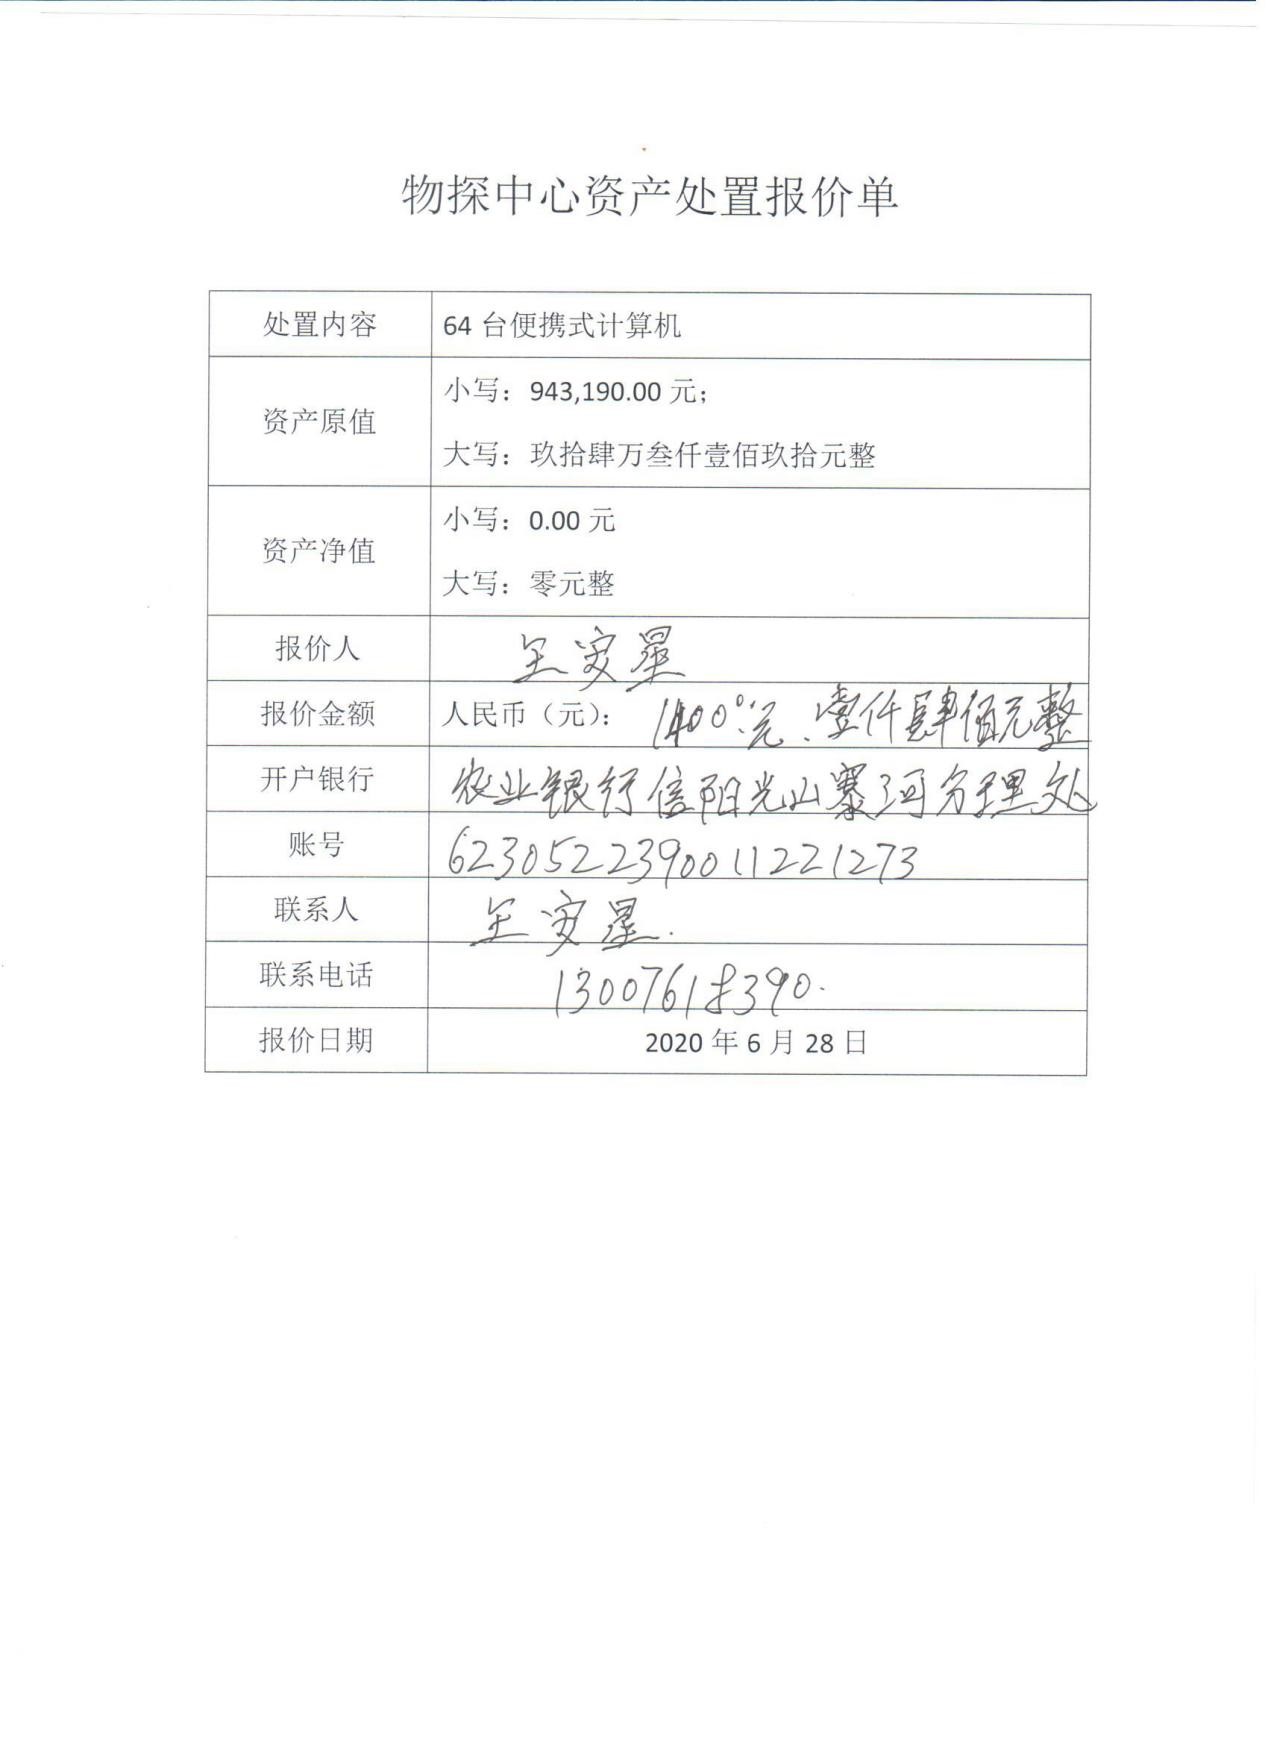 物探中心资产处置报价单
处置内容 64 台便携式计算机
资产原值
小写：943,190.00 元；
大写：玖拾肆万叁仟壹佰玖拾元整
资产净值
小写：0.00 元
大写：零元整
报价人 王安星
报价金额 人民币（元）： 1400元、壹仟肆佰元整
开户银行 农业银行信阳光山寨河分理处
账号 6230522390011221273
联系人 王安星.
联系电话 13007618390.
报价日期 2020 年 6 月 28 日